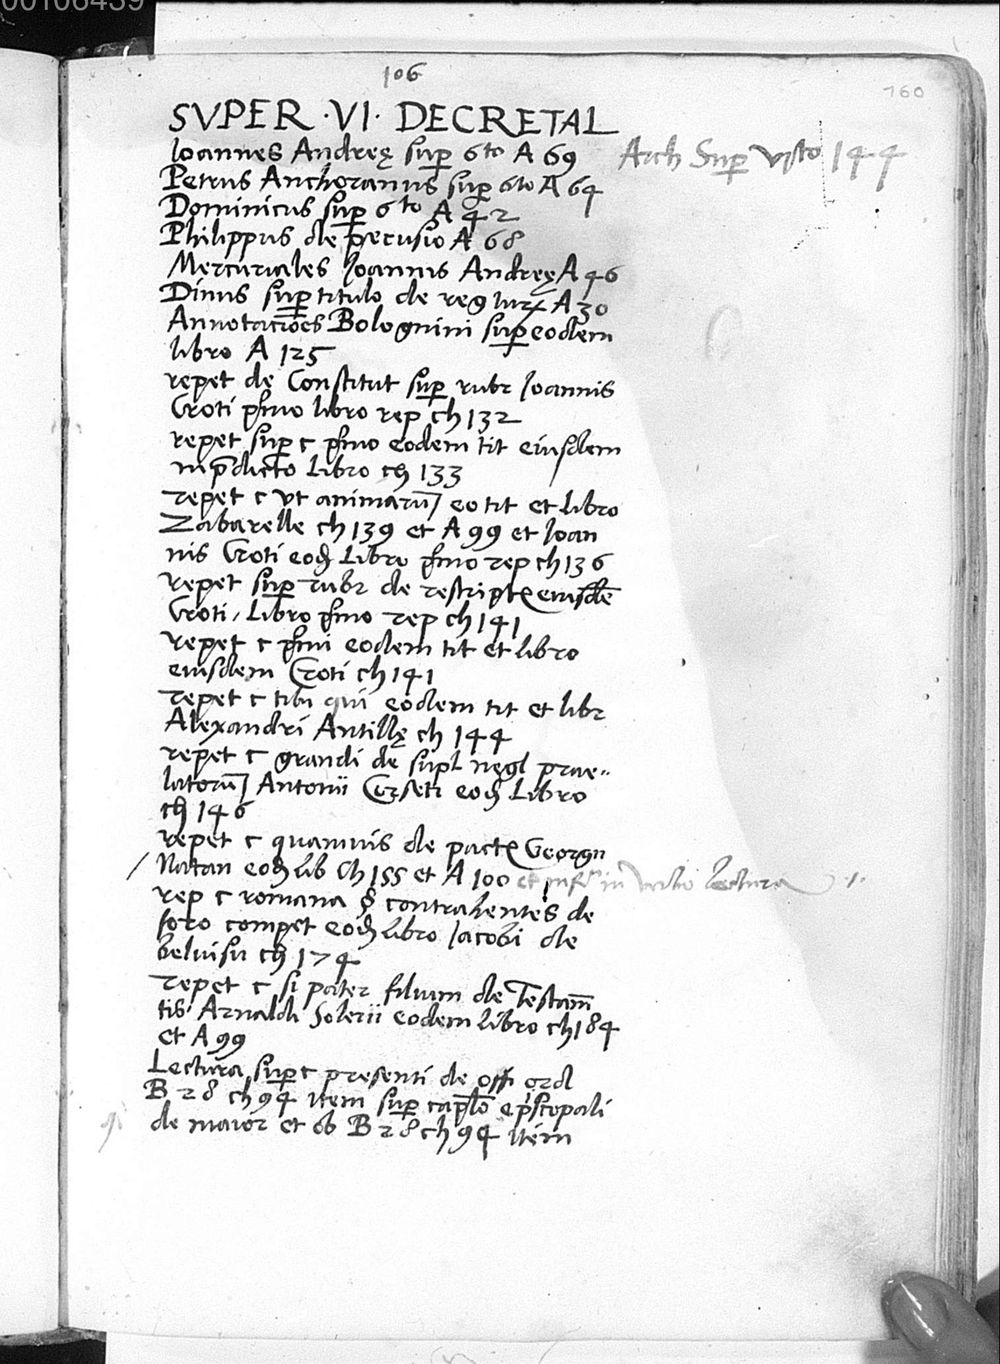 00106439
106
160
SVPER · VI · DECRETAL
Ioannes Andreę sup 6to A 69 Arch Sup VIto 144
Petrus Anchoranus sup 6to A 64
Dominicus sup 6to A 42
Philippus de perusio A 68
Mercuriales Ioannis Andreę A 46
Dinus sup titulo de reg iur A 30
Annotaciões Bolognini sup eodem
libro A 125
repet de Constitut sup rubr Ioannis
Croti pimo libro rep ch 132
repet sup c pimo eodem tit eiusdem
in pdicto Libro ch 133
repet c ut animarū eo tit et libro
Zabarelle ch 139 et A 99 et Ioan
nis Croti eod Libro pimo rep ch 136
repet sup rubr de rescript eiusdē
Croti, Libro pimo rep ch 141
repet c pimi eodem tit et libro
eiusdem Croti ch 141
repet c tibi qui eodem tit et libr
Alexandri Antillę ch 144
repet c grandi de supl negl prae-
latorū Antonii eod Libro
ch 146
repet c quamuis de pact Georgii
Natan eod lib Ch 155 et A 100 et in lectura
rep c romana § contrahentes de
foro compet eod libro Iacobi de
beluisu ch 174
repet c si pater filium de Testam
tis Arnaldi Solerii eodem libro ch 184
et A 99
Lectura sup c presenti de offi ord
B 28 ch 94 item sup caplo episcopali
de maior et ob B 28 ch 94 item